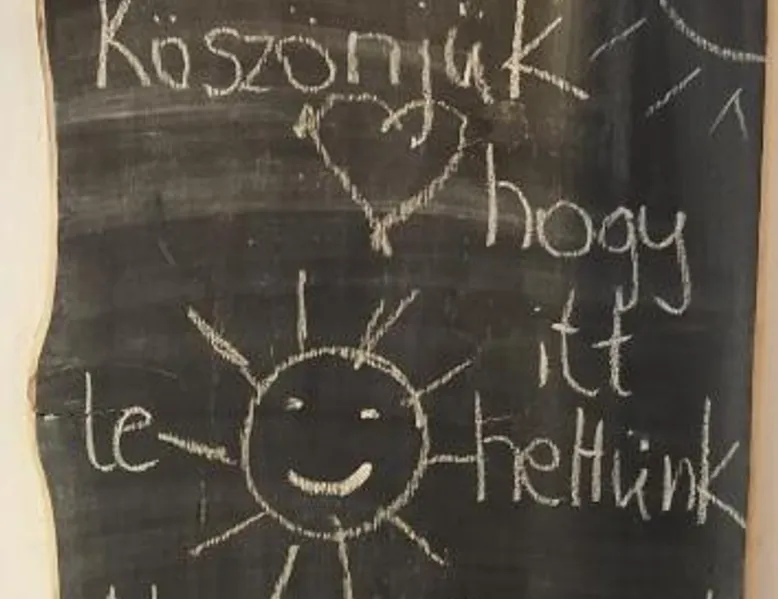 Köszönjük
hogy
itt
le-hettünk